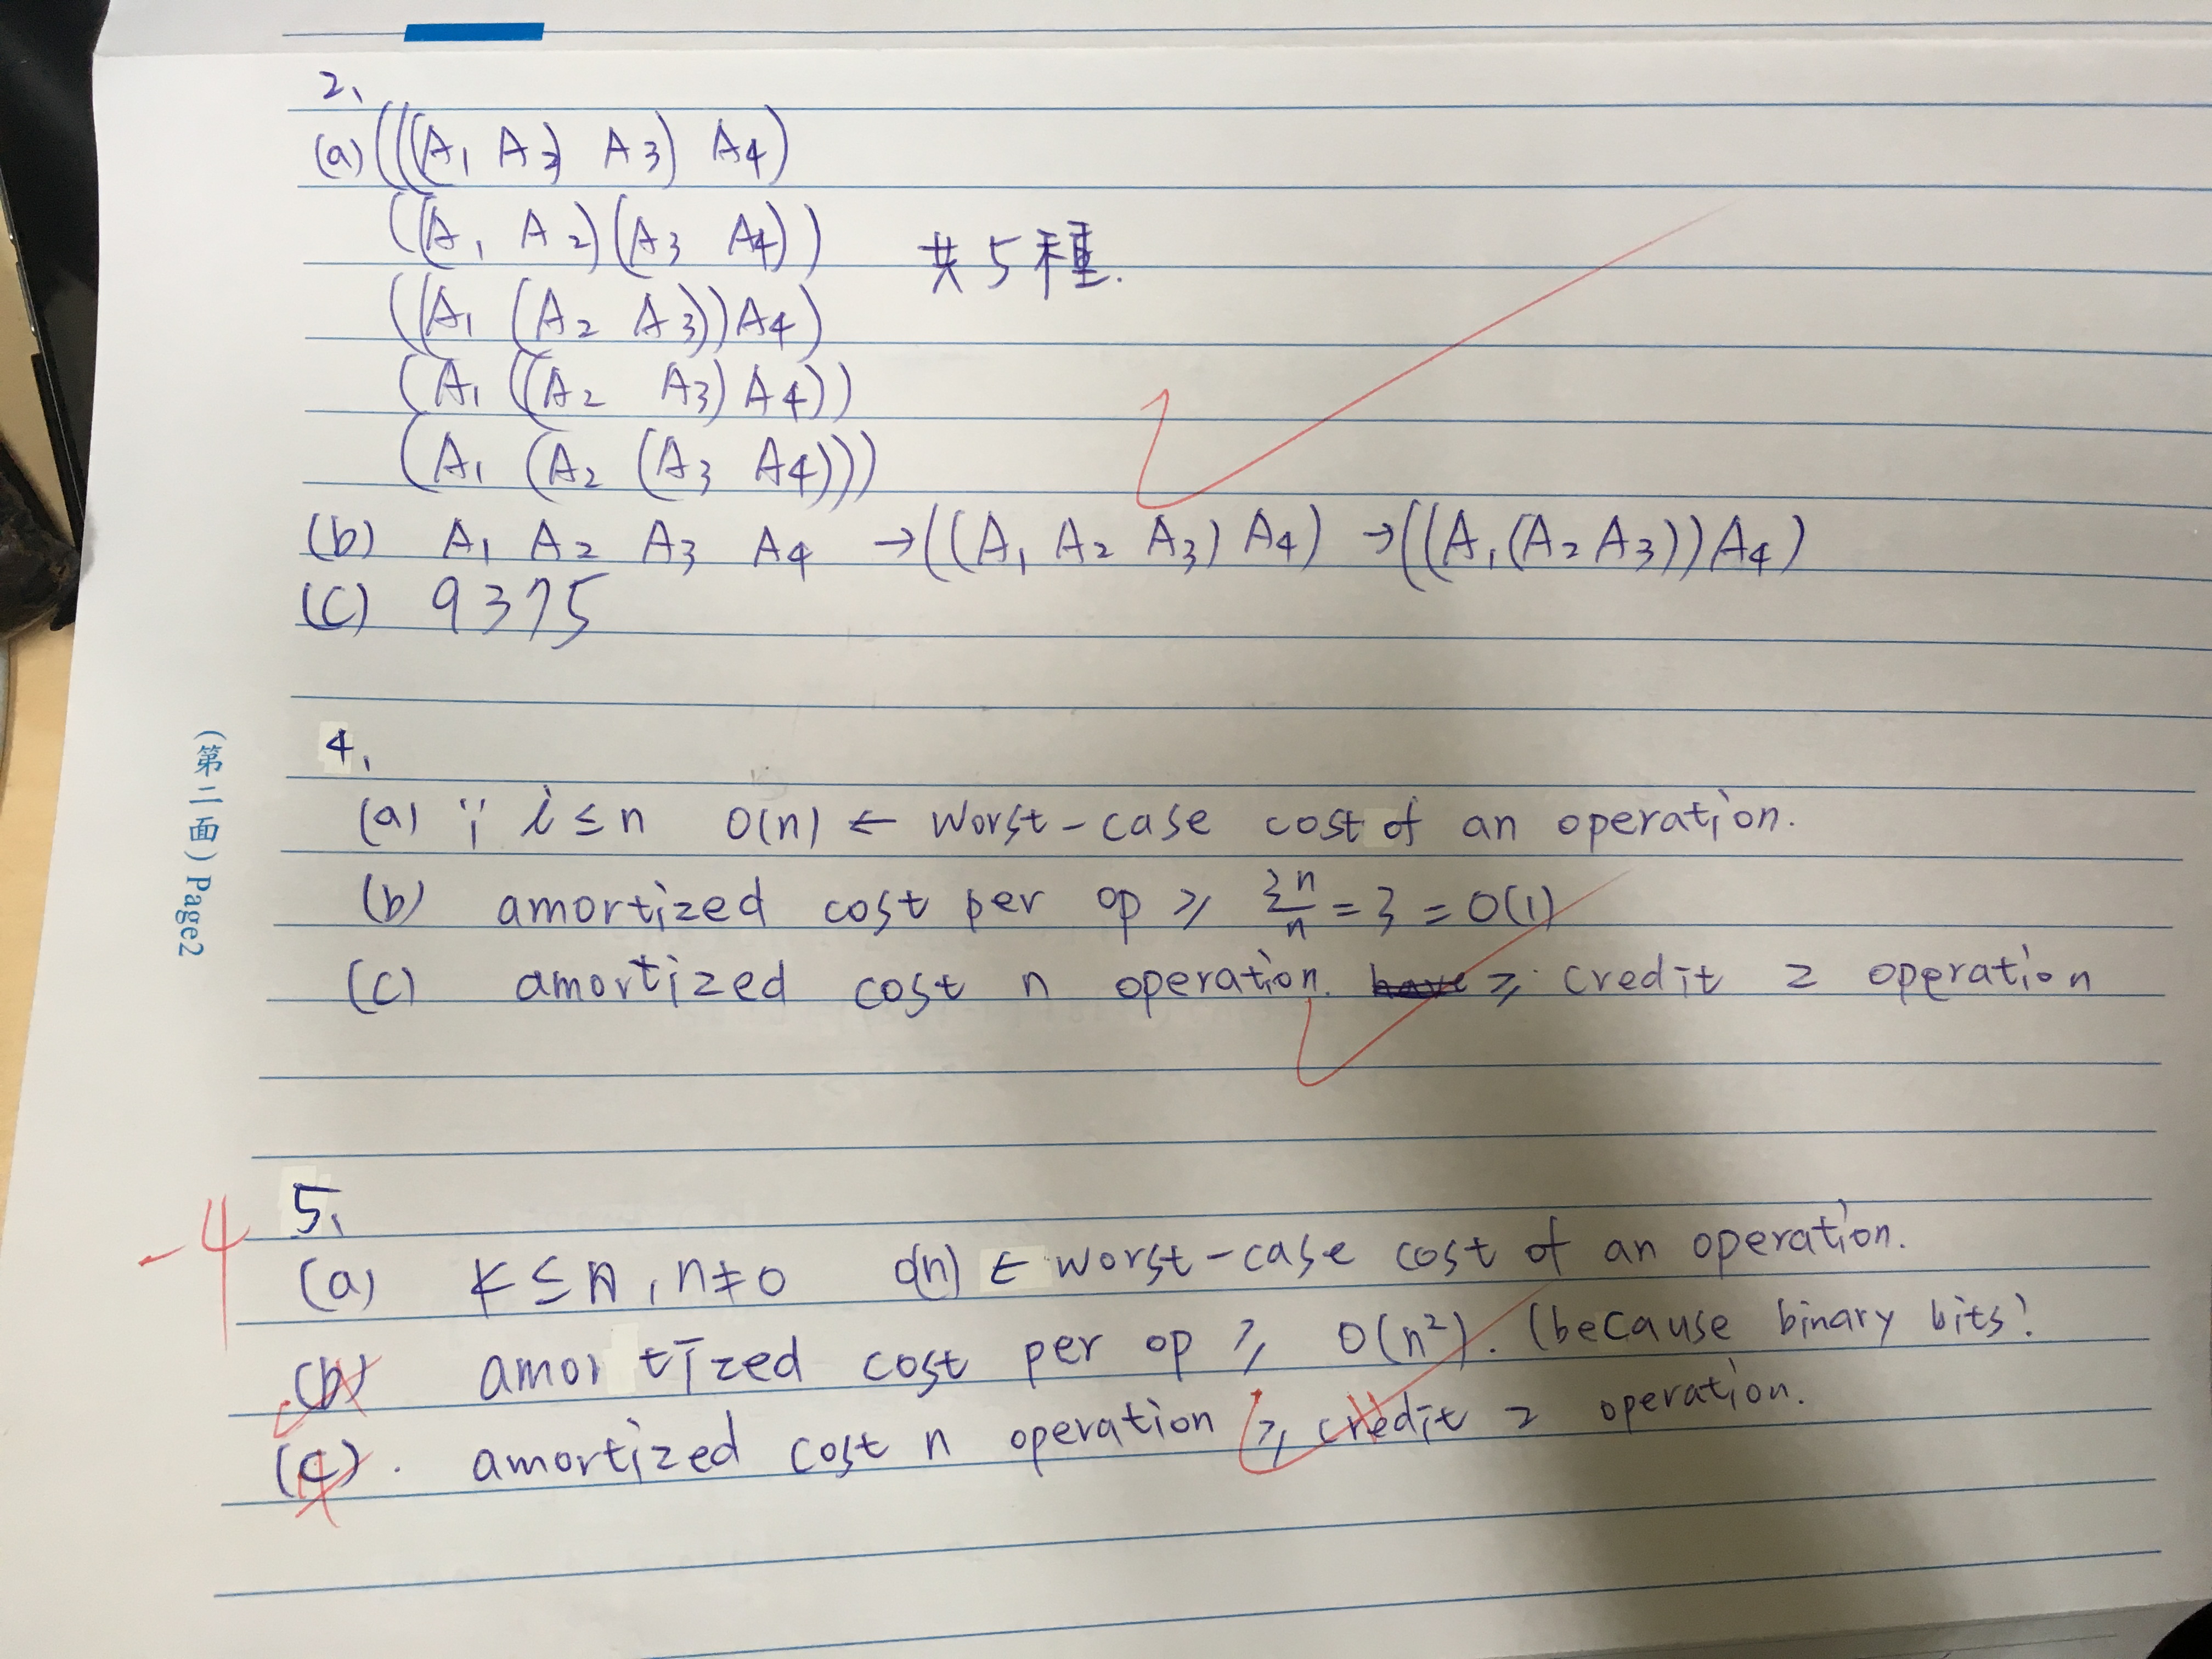 2、
(a) (((A₁ A₂) A₃) A₄)
((A₁ A₂)(A₃ A₄)) 共5種.
((A₁ (A₂ A₃))A₄)
(A₁ ((A₂ A₃) A₄))
(A₁ (A₂ (A₃ A₄)))
(b) A₁ A₂ A₃ A₄ →((A₁ A₂ A₃) A₄) →((A₁(A₂ A₃))A₄)
(c) 9375
4、
(a) ∵ i ≤ n O(n) ← worst-case cost of an operation.
(b) amortized cost per op ≥ 3n/n = 3 = O(1)
(c) amortized cost n operation. ≥ credit 2 operation
(第二面) Page2
-4
5、
(a) k ≤ n, n≠0 O(n) ← worst-case cost of an operation.
(b) amortized cost per op ≥ O(n²). (because binary bits!
(c). amortized cost n operation ≥ credit 2 operation.